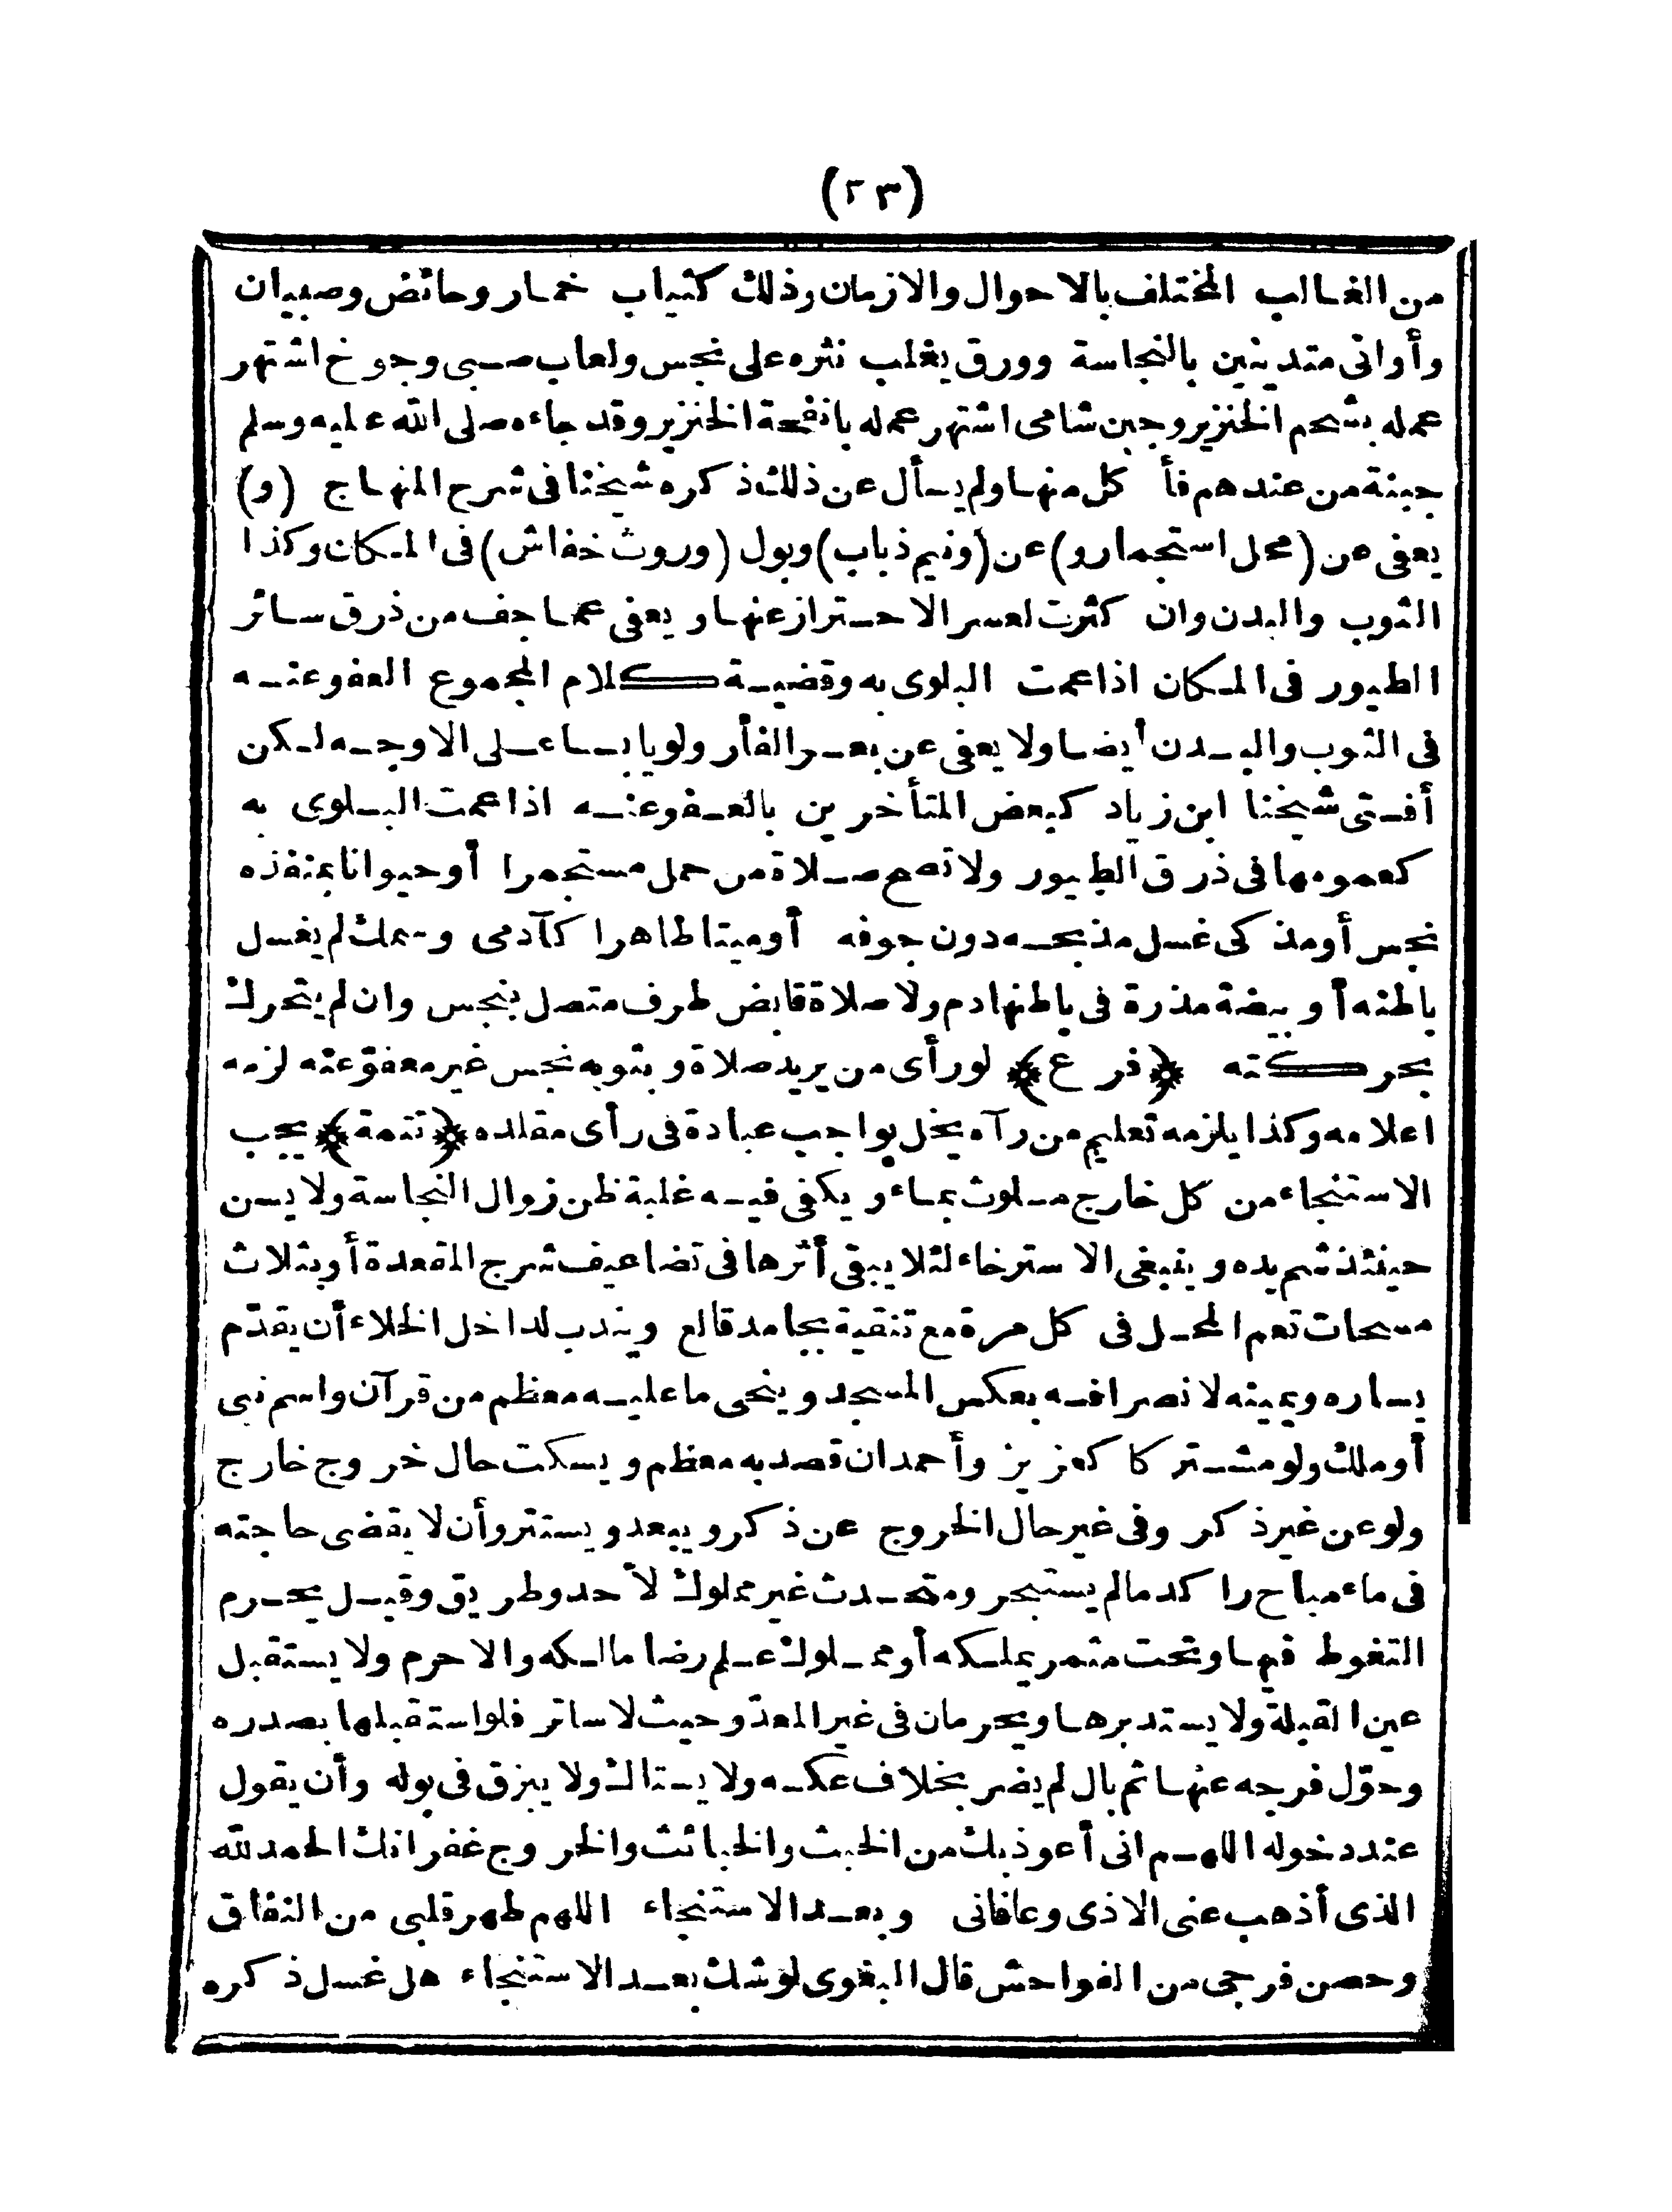 (٢٣)
من الغالب المختلف بالاحوال والازمان وذلك كثياب خمار وحائض وصبيان
وأوانى متدينين بالنجاسة وورق يغلب نثره على نجس ولعاب صبى وجوخ اشتهر
عمله بشحم الخنزير وجبن شامى اشتهر عمله بانفحة الخنزير وقد جاءه صلى الله عليه وسلم
جبنة من عندهم فأ كل منها ولم يسأل عن ذلك ذكره شيخنا فى شرح المنهاج (و)
يعفى عن (محل استجمارو) عن (ونيم ذباب) وبول (وروث خفاش) فى المكان وكذا
الثوب والبدن وان كثرت لعسر الاحتراز عنها ويعفى عما جف من ذرق سائر
الطيور فى المكان اذا عمت البلوى به وقضية كلام المجموع العفو عنه
فى الثوب والبدن أيضا ولا يعفى عن بعر الفأر ولو يابسا على الاوجه لكن
أفتى شيخنا ابن زياد كبعض المتأخرين بالعفو عنه اذا عمت البلوى به
كعمومها فى ذرق الطيور ولا تصح صلاة من حمل مستجمرا أو حيوانا بمنفذه
نجس أو مذكى غسل مذبحه دون جوفه أو ميتا طاهرا كآدمى وسمك لم يغسل
باطنه أو بيضة مذرة فى باطنها دم ولا صلاة قابض طرف متصل بنجس وان لم يتحرك
بحركته ﴿فرع﴾ لو رأى من يريد صلاة وبثوبه نجس غير معفوّ عنه لزمه
اعلامه وكذا يلزمه تعليم من رآه يخل بواجب عبادة فى رأى مقلده ﴿تتمة﴾ يجب
الاستنجاء من كل خارج ملوث بماء ويكفى فيه غلبة ظن زوال النجاسة ولا يسن
حينئذ شم يده وينبغى الاسترخاء لئلا يبقى أثرها فى تضاعيف شرج المقعدة أو بثلاث
مسحات تعم المحل فى كل مرة مع تنقية بجامد قالع ويندب لداخل الخلاء أن يقدّم
يساره ويمينه لانصرافه بعكس المسجد وينحى ما عليه معظم من قرآن واسم نبى
أو ملك ولو مشتركا كعزيز وأحمد ان قصد به معظم ويسكت حال خروج خارج
ولو عن غير ذكر وفى غير حال الخروج عن ذكر ويبعد ويستتر وأن لا يقضى حاجته
فى ماء مباح راكد مالم يستبحر ومتحدث غير مملوك لأحد وطريق وقيل يحرم
التغوط فيها وتحت مثمر بملكه أو مملوك علم رضا مالكه والا حرم ولا يستقبل
عين القبلة ولا يستدبرها ويحرمان فى غير المعدّ وحيث لا ساتر فلو استقبلها بصدره
وحوّل فرجه عنها ثم بال لم يضر بخلاف عكسه ولا يستاك ولا يبزق فى بوله وأن يقول
عند دخوله اللهم انى أعوذ بك من الخبث والخبائث والخروج غفرانك الحمد لله
الذى أذهب عنى الاذى وعافانى وبعد الاستنجاء اللهم طهر قلبى من النفاق
وحصن فرجى من الفواحش قال البغوى لو شك بعد الاستنجاء هل غسل ذكره